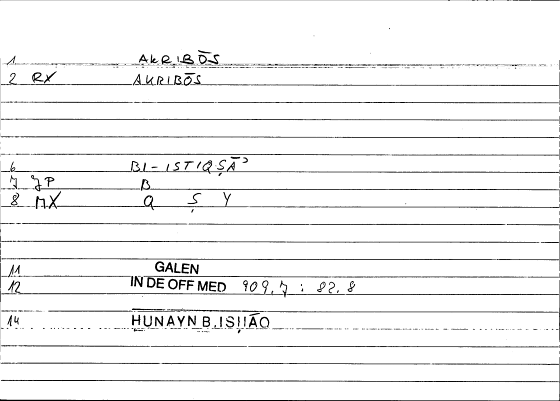 1 AKRIBŌS
2 RX AKRIBŌS
6 BI-ISTIQṢĀʾ
7 JP B
8 MX Q Ṣ Y
11 GALEN
12 IN DE OFF MED 909,7 : 82.8
14 ḤUNAYN B. ISḤĀQ